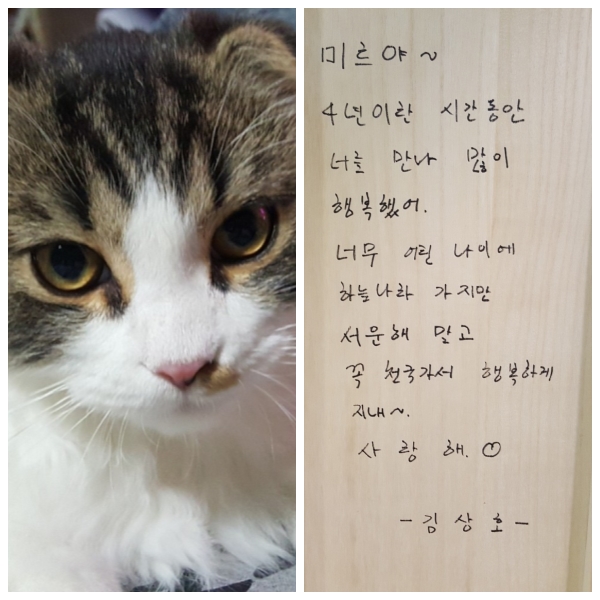 미르야~
4년이란 시간동안
너를 만나 많이
행복했어.
너무 어린 나이에
하늘나라 가지만
서운해 말고
꼭 천국가서 행복하게
지내~.
사랑해. ♡
- 김상호 -